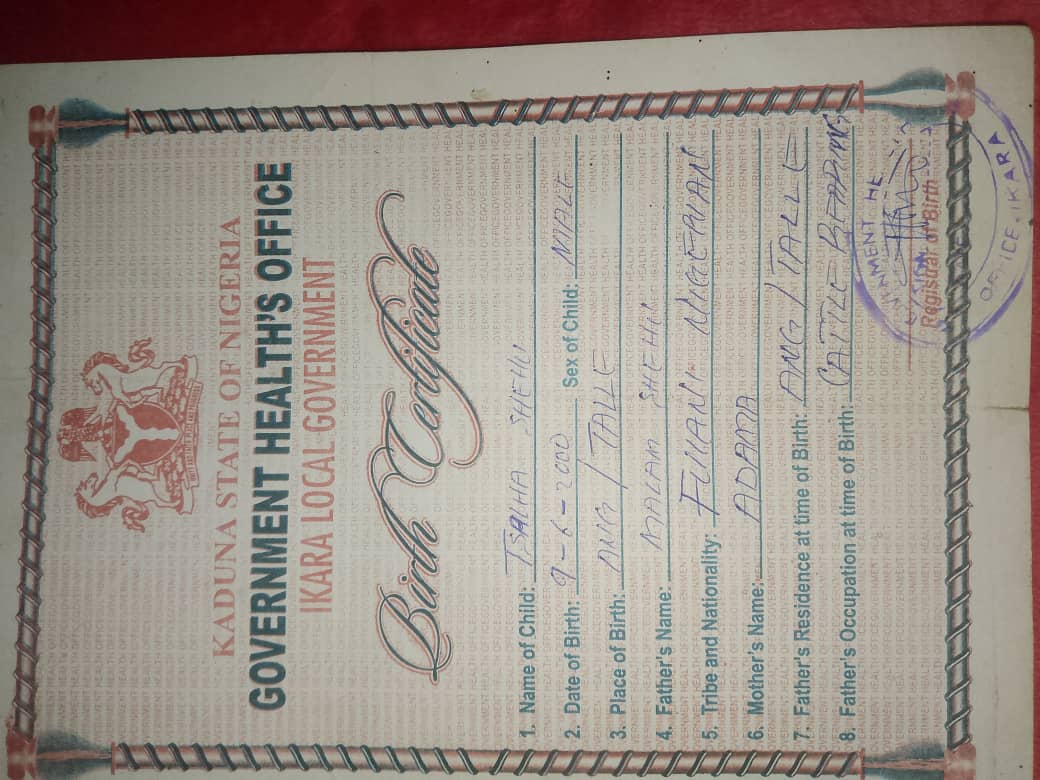 KADUNA STATE OF NIGERIA
GOVERNMENT HEALTH'S OFFICE
IKARA LOCAL GOVERNMENT
Birth Certificate
1. Name of Child: TSALHA SHEHU
2. Date of Birth: 9-6-2000 Sex of Child: MALE
3. Place of Birth: ANG/TALLE
4. Father's Name: MALAM SHEHU
5. Tribe and Nationality: FULANI NIGERIAN
6. Mother's Name: ADAMA
7. Father's Residence at time of Birth: ANG/TALLE
8. Father's Occupation at time of Birth: CATTLE REARING
Registrar of Birth
OFFICE IKARA